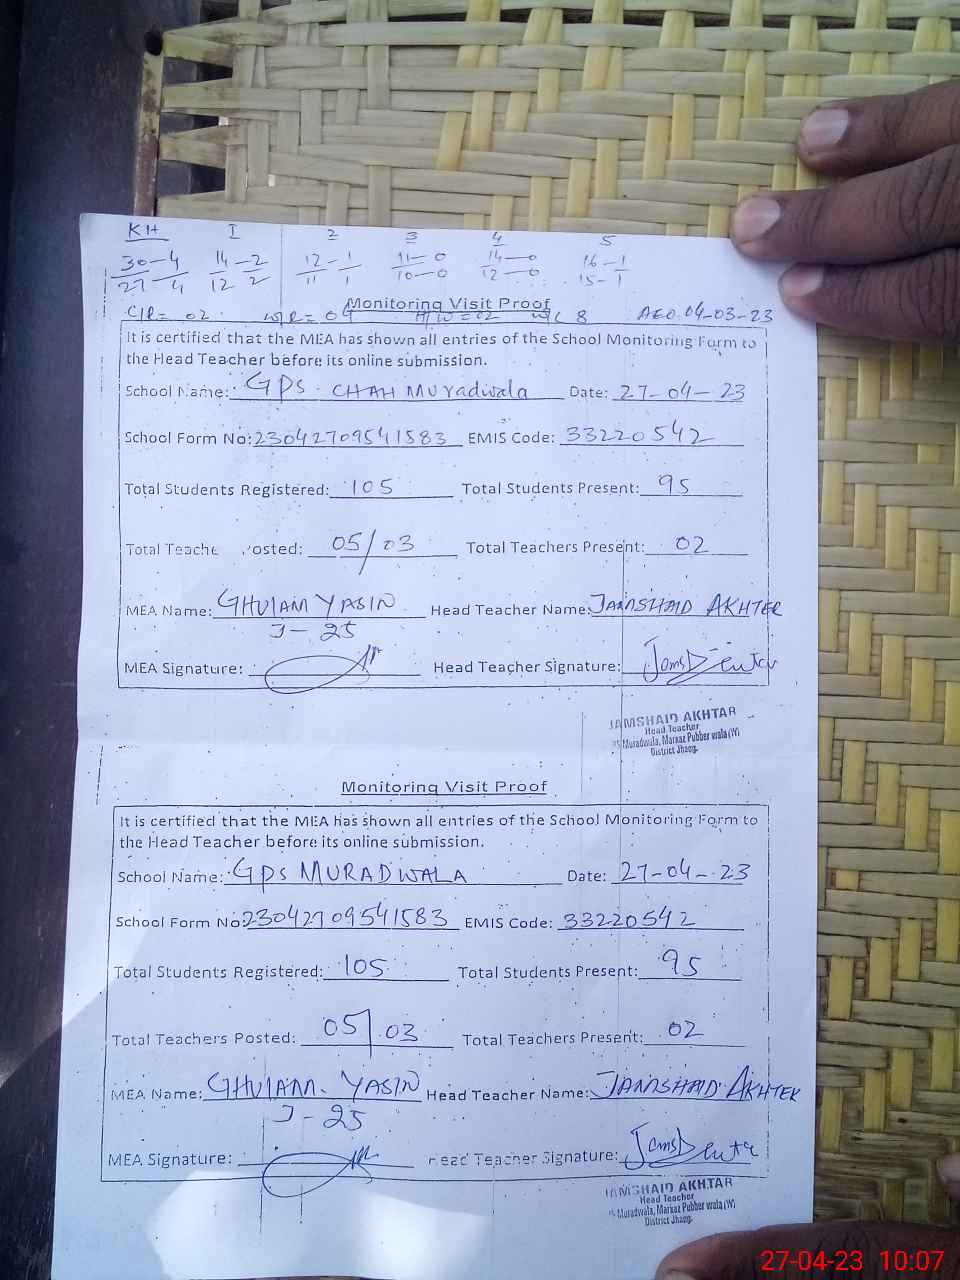 KH I 2 3 4 5
30-4 14-2 12-1 11-0 14-0 16-1
27-4 12 2 11 1 10-0 12-0 15-1
Monitoring Visit Proof
C/R= 02 W/R= 04 H/W=02 W/C 8 AEO.04-03-23
It is certified that the MEA has shown all entries of the School Monitoring Form to
the Head Teacher before its online submission.
School Name: GPS. CHAH MURadwala Date: 27-04-23
School Form No: 23042709541583 EMIS Code: 33220542
Total Students Registered: 105 Total Students Present: 95
Total Teache osted: 05/03 Total Teachers Present: 02
MEA Name: GHULAM YASIN Head Teacher Name: JAMSHAID AKHTER
J-25
MEA Signature: Head Teacher Signature:
JAMSHAID AKHTAR
Head Teacher
Muradwala, Markaz Pubber wala (W)
District Jhang.
Monitoring Visit Proof
It is certified that the MEA has shown all entries of the School Monitoring Form to
the Head Teacher before its online submission.
School Name: GPS MURADWALA Date: 27-04-23
School Form No: 23042709541583 EMIS Code: 33220542
Total Students Registered: 105 Total Students Present: 95
Total Teachers Posted: 05/03 Total Teachers Present: 02
MEA Name: GHULAM YASIN Head Teacher Name: JAMSHAID AKHTER
J-25
MEA Signature: Head Teacher Signature:
JAMSHAID AKHTAR
Head Teacher
Muradwala, Markaz Pubber wala (W)
District Jhang.
27-04-23 10:07